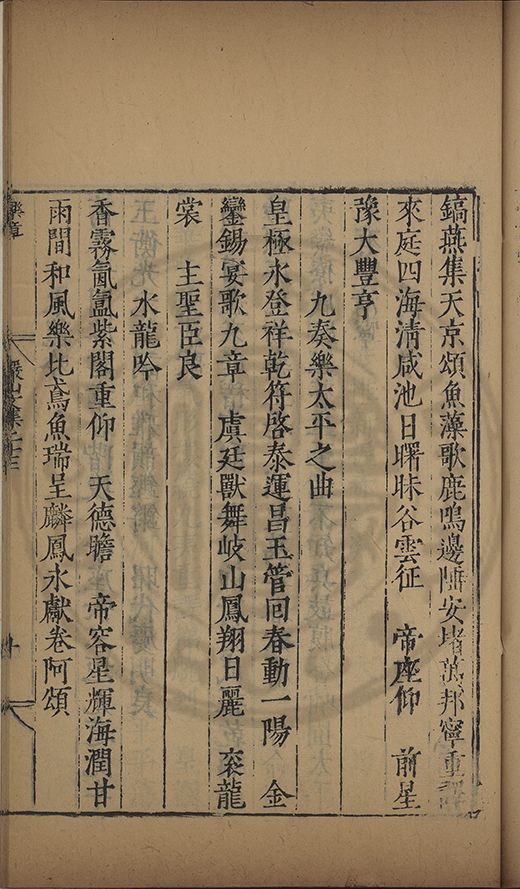 鎬燕集天京頌魚藻歌鹿鳴邊陲安堵萬邦寧重譯
來庭四海清咸池日曙昧谷雲征 帝座仰 前星
豫大豐亨
九奏樂太平之曲
皇極永登祥乾符啓泰運昌玉管回春動一陽 金
鑾錫宴歌九章 虞廷獸舞岐山鳳翔日麗 袞龍
裳 主聖臣良
水龍吟
香霧氤氳紫閣重仰 天德瞻 帝容星輝海潤甘
雨間和風樂比鳶魚瑞呈麟鳳永獻卷阿頌
樂章